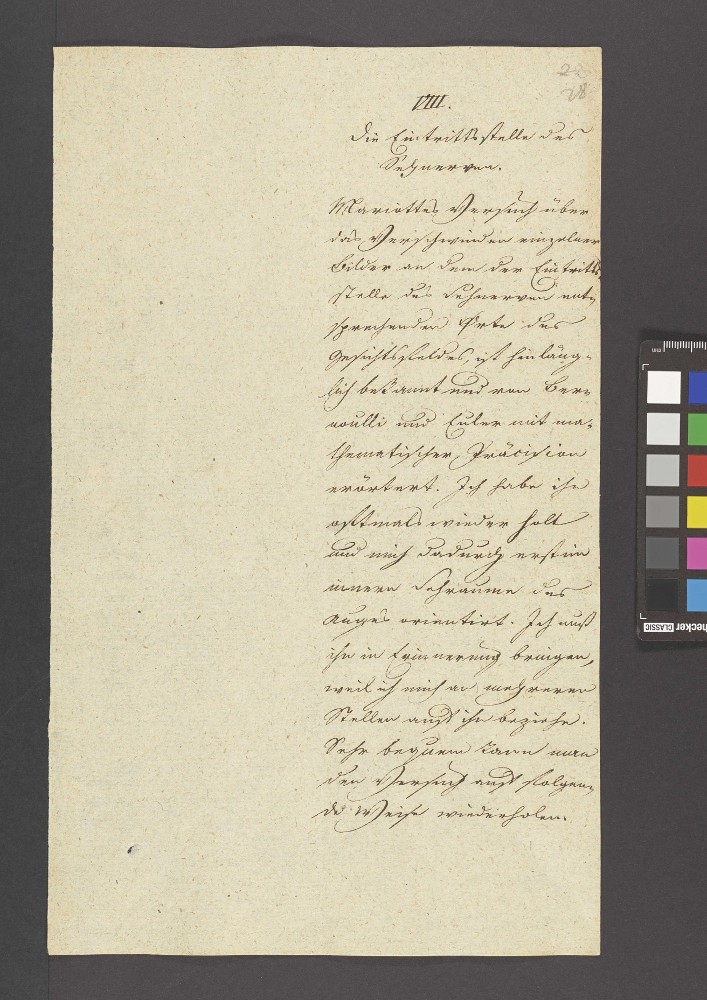 22
28
VIII.
Die Eintrittsstelle des
Sehnerven.
Mariottes Versuch über
das Verschwinden einzelner
Bilder an dem der Eintritts-
stelle des Sehnerven ent-
sprechenden Orte des
Gesichtsfeldes, ist hinläng-
lich bekannt und von Ber-
noulli und Euler mit ma-
thematischer Präcision
erörtert. Ich habe ihn
oftmals wieder holt
und mich dadurch erst im
innern Sehraume des
Auges orientirt. Ich muß
ihn in Erinnerung bringen,
weil ich mich an mehreren
Stellen auf ihn beziehe.
Sehr bequem kann man
den Versuch auf folgen-
de Weise wiederholen.
mm
checker CLASSIC